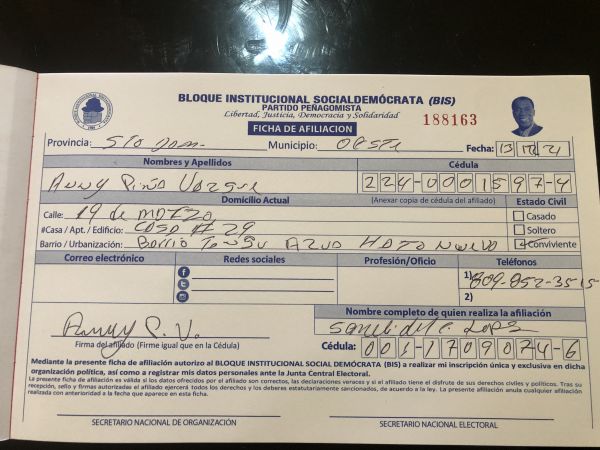 BLOQUE INSTITUCIONAL SOCIALDEMÓCRATA (BIS)
PARTIDO PEÑAGOMISTA
Libertad, Justicia, Democracia y Solidaridad
188163
FICHA DE AFILIACION
Provincia: Sto Dom Municipio: Oeste Fecha: 13 21
Nombres y Apellidos Cédula
Anny Piña 224-0001597-4
Domicilio Actual (Anexar copia de cédula del afiliado) Estado Civil
Calle: 19 de Marzo Casado
#Casa / Apt. / Edificio: Casa # 29 Soltero
Barrio / Urbanización: Barrio Hato Nuevo Conviviente
Correo electrónico Redes sociales Profesión/Oficio Teléfonos
1) 809-852-3515
2)
Nombre completo de quien realiza la afiliación
Anny P. V.
Firma del afiliado (Firme igual que en la Cédula) Cédula: 001-1709074-6
Mediante la presente ficha de afiliación autorizo al BLOQUE INSTITUCIONAL SOCIAL DEMÓCRATA (BIS) a realizar mi inscripción única y exclusiva en dicha
organización política, así como a registrar mis datos personales ante la Junta Central Electoral.
La presente ficha de afiliación es válida si los datos ofrecidos por el afiliado son correctos, las declaraciones veraces y si el afiliado tiene el disfrute de sus derechos civiles y políticos. Tras su
recepción, sello y firmas autorizadas el afiliado ejercerá todos los derechos y los deberes estatutariamente sancionados, de acuerdo a la ley. La presente afiliación anula cualquier afiliación
realizada con anterioridad a la fecha que aparece en esta ficha.
SECRETARIO NACIONAL DE ORGANIZACIÓN SECRETARIO NACIONAL ELECTORAL